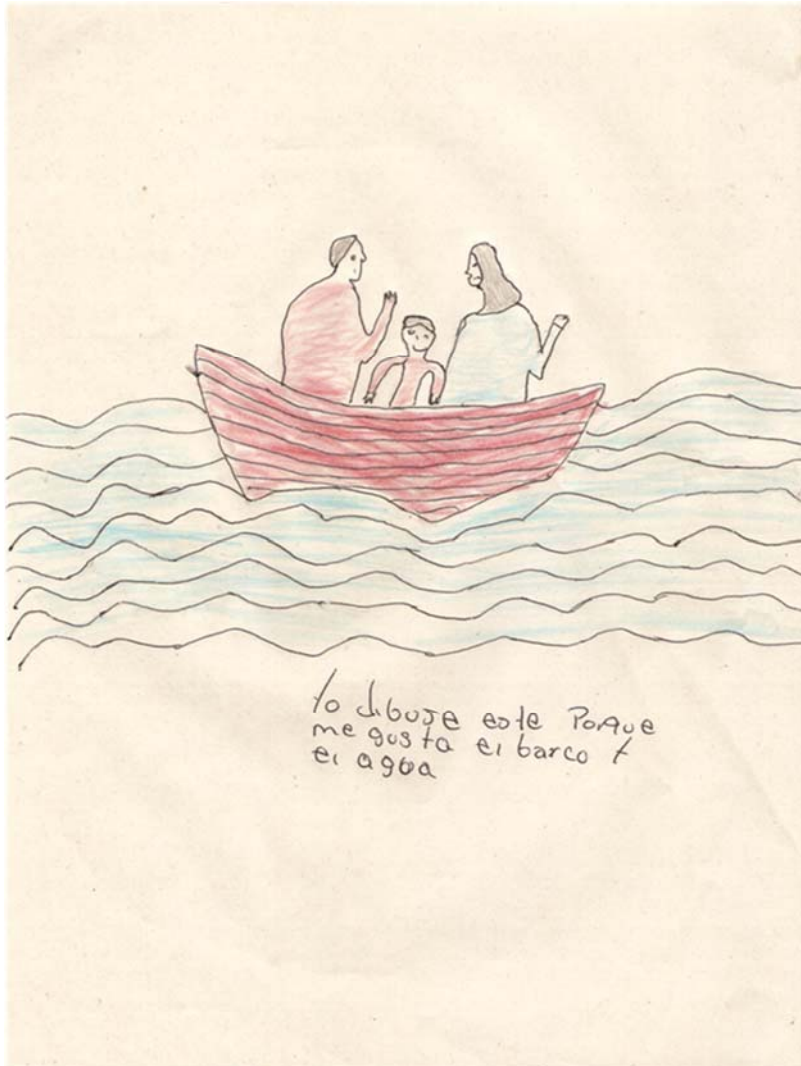 Yo dibuje este Porque
me gusta el barco y
el agua